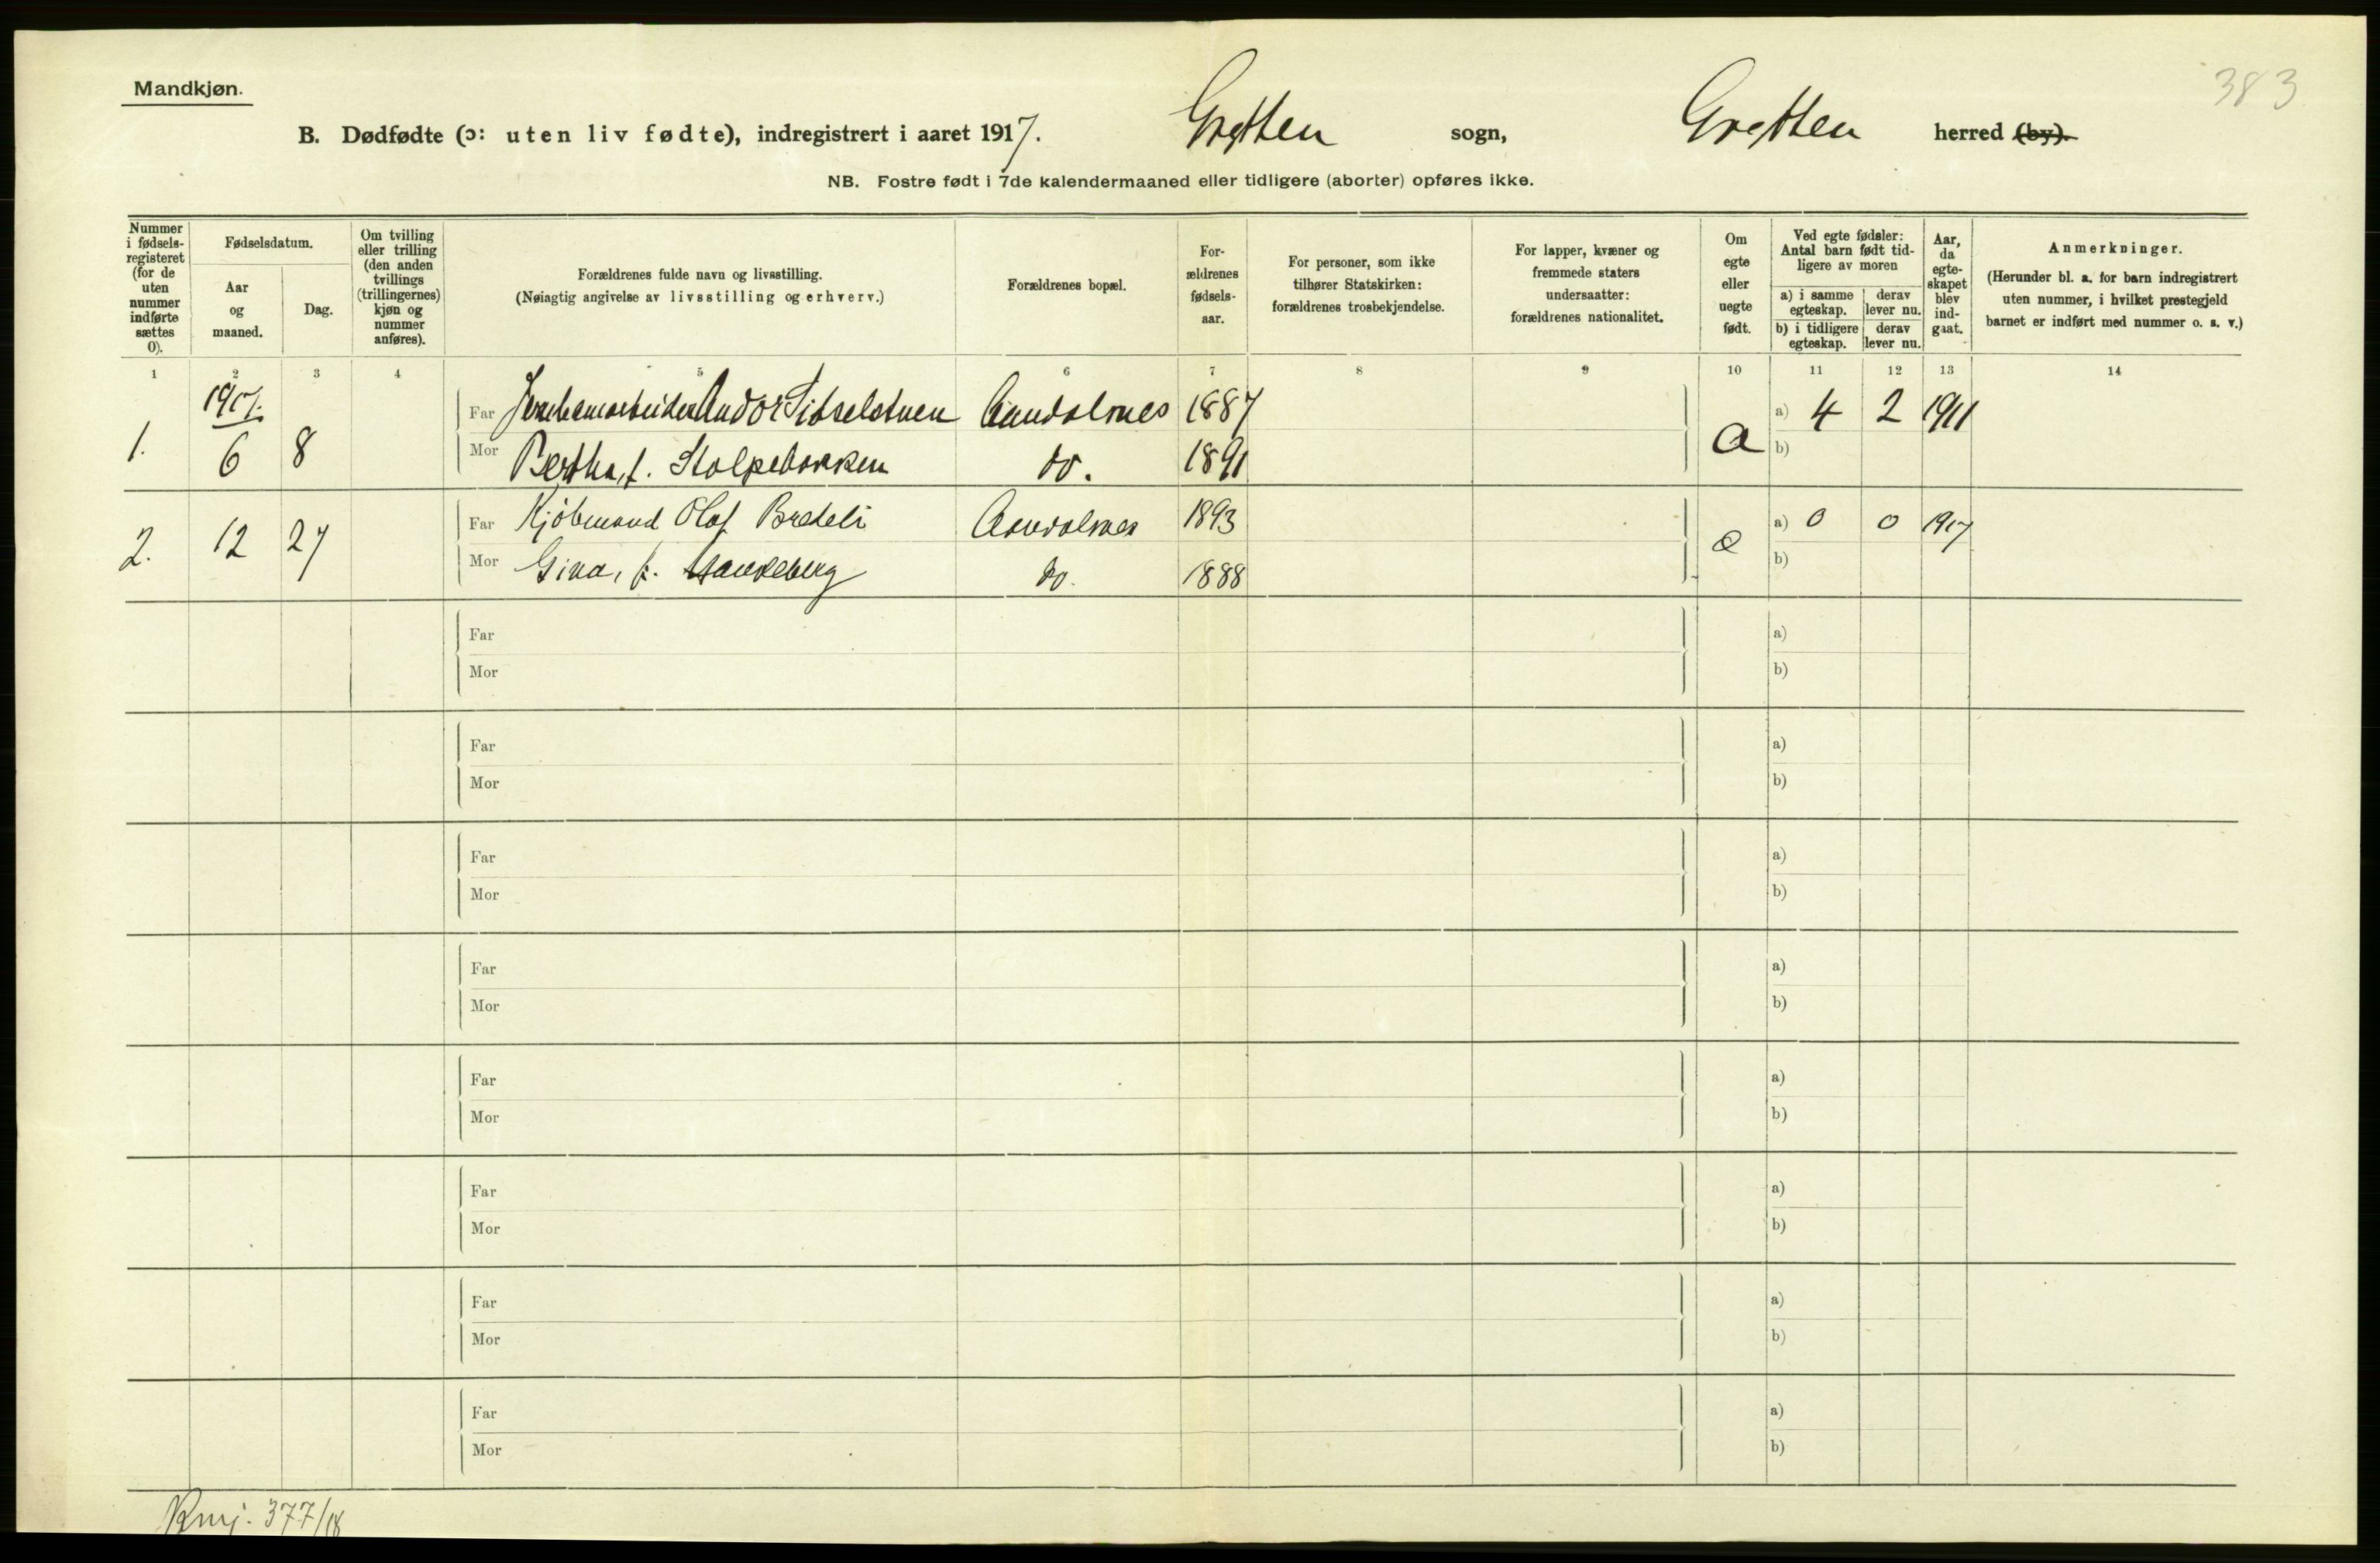 383
Mandkjøn.
B. Dødfødte (ɔ: uten liv fødte), indregistrert i aaret 1917. Grytten sogn, Grytten herred (by).
NB. Fostre født i 7de kalendermaaned eller tidligere (aborter) opføres ikke.
Nummer i fødsels-registeret (for de uten nummer indførte sættes 0).
Fødselsdatum.
Aar og maaned.
Dag.
Om tvilling eller trilling (den anden tvillings (trillingernes) kjøn og nummer anføres).
Forældrenes fulde navn og livsstilling.
(Nøiagtig angivelse av livsstilling og erhverv.)
Forældrenes bopæl.
For-ældrenes fødsels-aar.
For personer, som ikke tilhører Statskirken: forældrenes trosbekjendelse.
For lapper, kvæner og fremmede staters undersaatter: forældrenes nationalitet.
Om egte eller uegte født.
Ved egte fødsler: Antal barn født tid-ligere av moren
a) i samme egteskap. derav lever nu.
b) i tidligere egteskap. derav lever nu.
Aar, da egte-skapet blev ind-gaat.
Anmerkninger.
(Herunder bl. a. for barn indregistrert uten nummer, i hvilket prestegjeld barnet er indført med nummer o. s. v.)
1 2 3 4 5 6 7 8 9 10 11 12 13 14
1917.
1. 6 8
Far Andor Aandalsnes 1887 a) 4 2 1911
Mor Bertha, f. Stolpebakken do. 1891 b)
2. 12 27
Far Kjøbmand Olaf Bredeli Aandalsnes 1893 e a) 0 0 1917
Mor Gina, f. Haukeberg do. 1888 b)
Far a)
Mor b)
Far a)
Mor b)
Far a)
Mor b)
Far a)
Mor b)
Far a)
Mor b)
Far a)
Mor b)
Far a)
Mor b)
Far a)
Mor b)
377/18